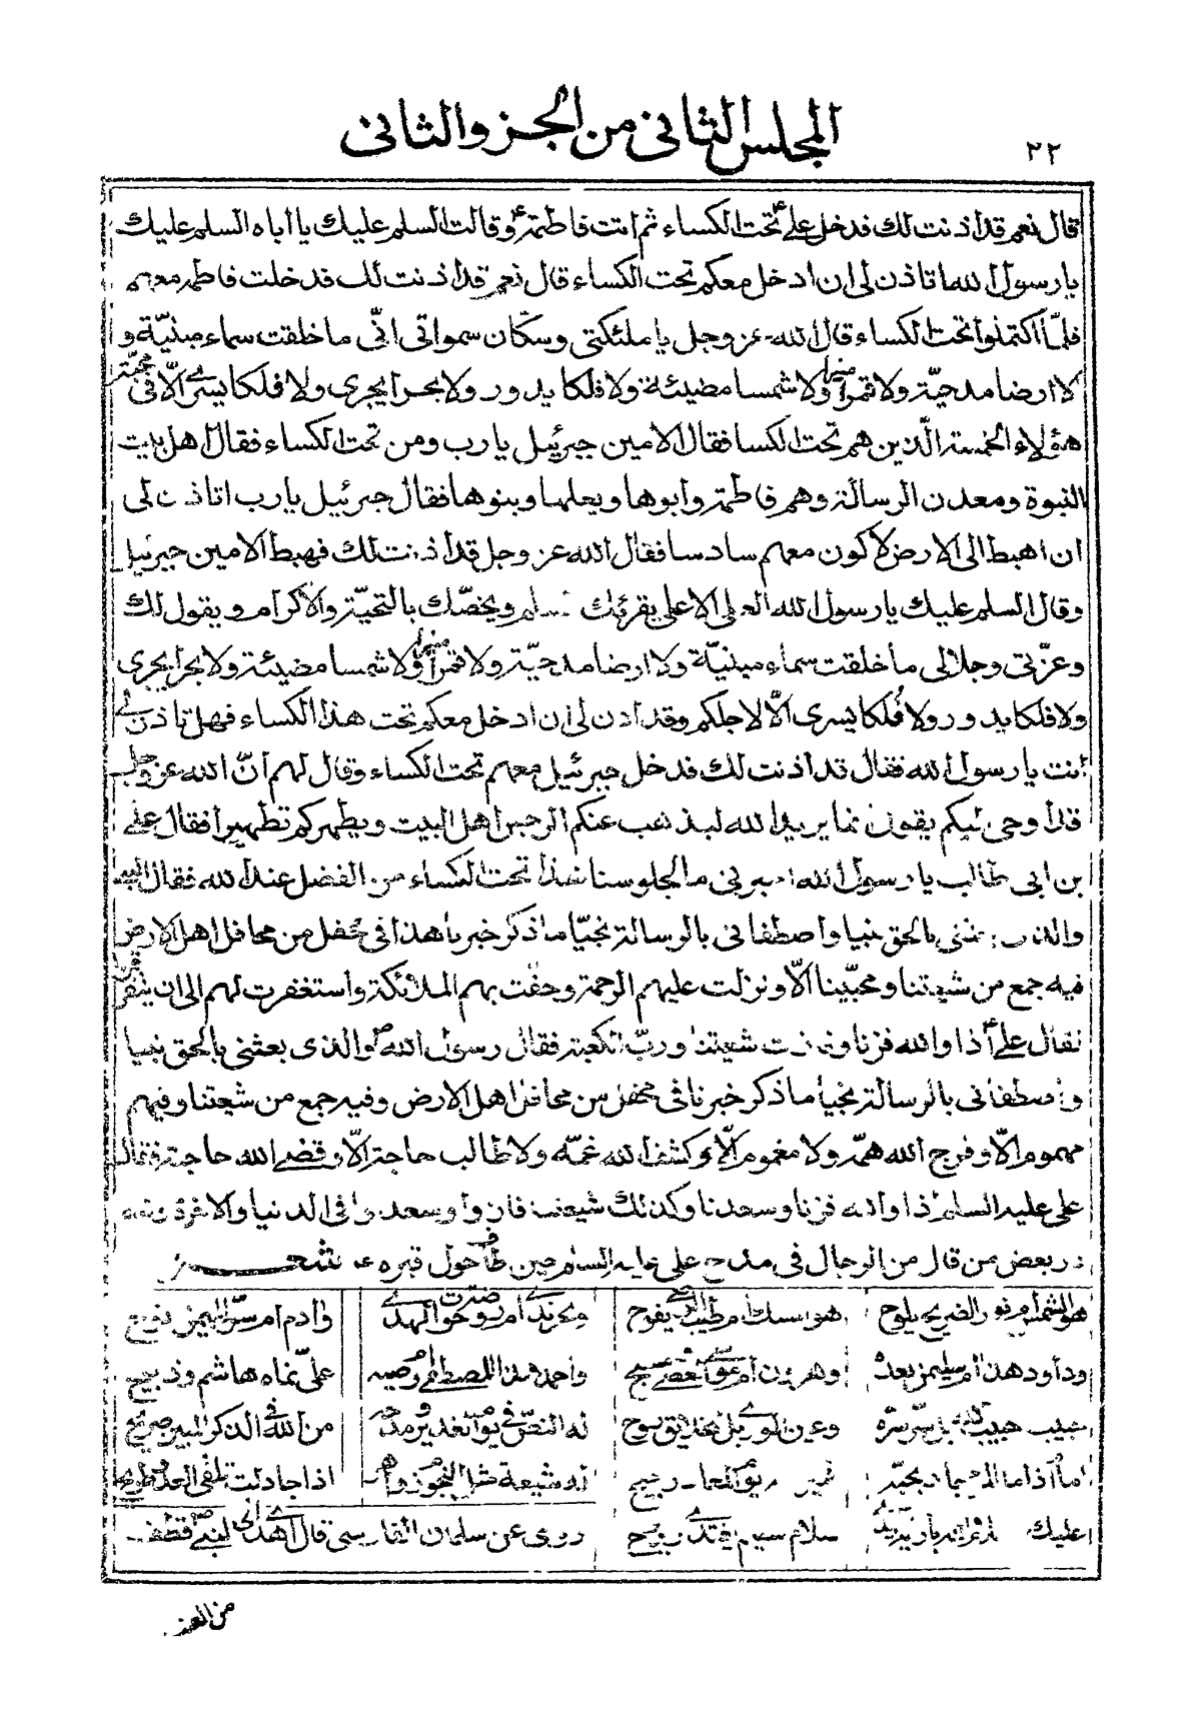 المجلس الثانى من الجزو الثانى
٢٢
قال نعم قد اذنت لك فدخل على تحت الكساء ثم اتت فاطمة وقالت السلم عليك يا اباه السلم عليك
يا رسول الله اتاذن لى ان ادخل معكم تحت الكساء قال نعم قد اذنت لك فدخلت فاطمه معهم
فلمّا اكتملوا تحت الكساء قال الله عز وجل يا ملئكتى وسكّان سمواتى انّى ما خلقت سماء مبنيّة و
لا ارضا مدحيّة ولا قمرا منيرا ولا شمسا مضيئة ولا فلكا يدور ولا بحرا يجرى ولا فلكا يسرى الّا فى محبّة
هؤلاء الخمسة الّذين هم تحت الكسا فقال الامين جبرئيل يا رب ومن تحت الكساء فقال اهل بيت
النبوة ومعدن الرسالة وهم فاطمة وابوها وبعلها وبنوها فقال جبرئيل يا رب اتاذن لى
ان اهبط الى الارض لاكون معهم سادسا فقال الله عز وجل قد اذنت لك فهبط الامين جبرئيل
وقال السلم عليك يا رسول الله العلى الاعلى يقرئك السلم ويخصّك بالتحيّة والاكرام ويقول لك
وعزّتى وجلالى ما خلقت سماء مبنيّة ولا ارضا مدحيّة ولا قمرا منيرا ولا شمسا مضيئة ولا بحرا يجرى
ولا فلكا يدور ولا فُلكا يسرى الّا لاجلكم وقد اذن لى ان ادخل معكم تحت هذا الكساء فهل تاذن لى
انت يا رسول الله فقال قد اذنت لك فدخل جبرئيل معهم تحت الكساء وقال لهم انّ الله عز وجل
قد اوحى اليكم يقول انما يريد الله ليذهب عنكم الرجس اهل البيت ويطهركم تطهيرا فقال على
بن ابى طالب يا رسول الله اخبرنى ما لجلوسنا هذا تحت الكساء من الفضل عند الله فقال النبى
والذى بعثنى بالحق نبيا واصطفانى بالرسالة نجيّا ما ذكر خبرنا هذا فى محفل من محافل اهل الارض
فيه جمع من شيعتنا ومحبّينا الّا ونزلت عليهم الرحمة وحفّت بهم الملائكة واستغفرت لهم الى ان يتفرّقوا
فقال على اذا والله فزنا وفازت شيعتنا وربّ الكعبة فقال رسول الله والذى بعثنى بالحق نبيا
واصطفانى بالرسالة نجيا ما ذكر خبرنا فى محفل من محافل اهل الارض وفيه جمع من شيعتنا وفيهم
مهموم الّا وفرج الله همّه ولا مغموم الّا وكشف الله غمّه ولا طالب حاجة الّا وقضى الله حاجته فقال
على عليه السلم اذا والله فزنا وسعدنا وكذلك شيعتنا فازوا وسعدوا فى الدنيا والاخرة
در بعض من قال من الرجال فى مدح على عليه السلم حين طاف حول قبره شعر
هو الشمس ام نور الضريح يلوح هو المسك ام طيب يفوح
وادم ام سرّ المهيمن نوح
وداود هذا ام سليمن بعده وهرون ام
واحمد هذا المصطفى ام وصيه علىّ نماه هاشم وذبيح
حبيب حبيب الله بل سرّ سرّه
له النصّ فى يوم الغدير ومدحه من الله فى الذكر المبين صريح
له شيعة مثل النجوم زواهر اذا جادلت تلقى العدوّ
عليك سلام
روى عن سلمان الفارسى قال اهدى الى النبى قطف
من العنب